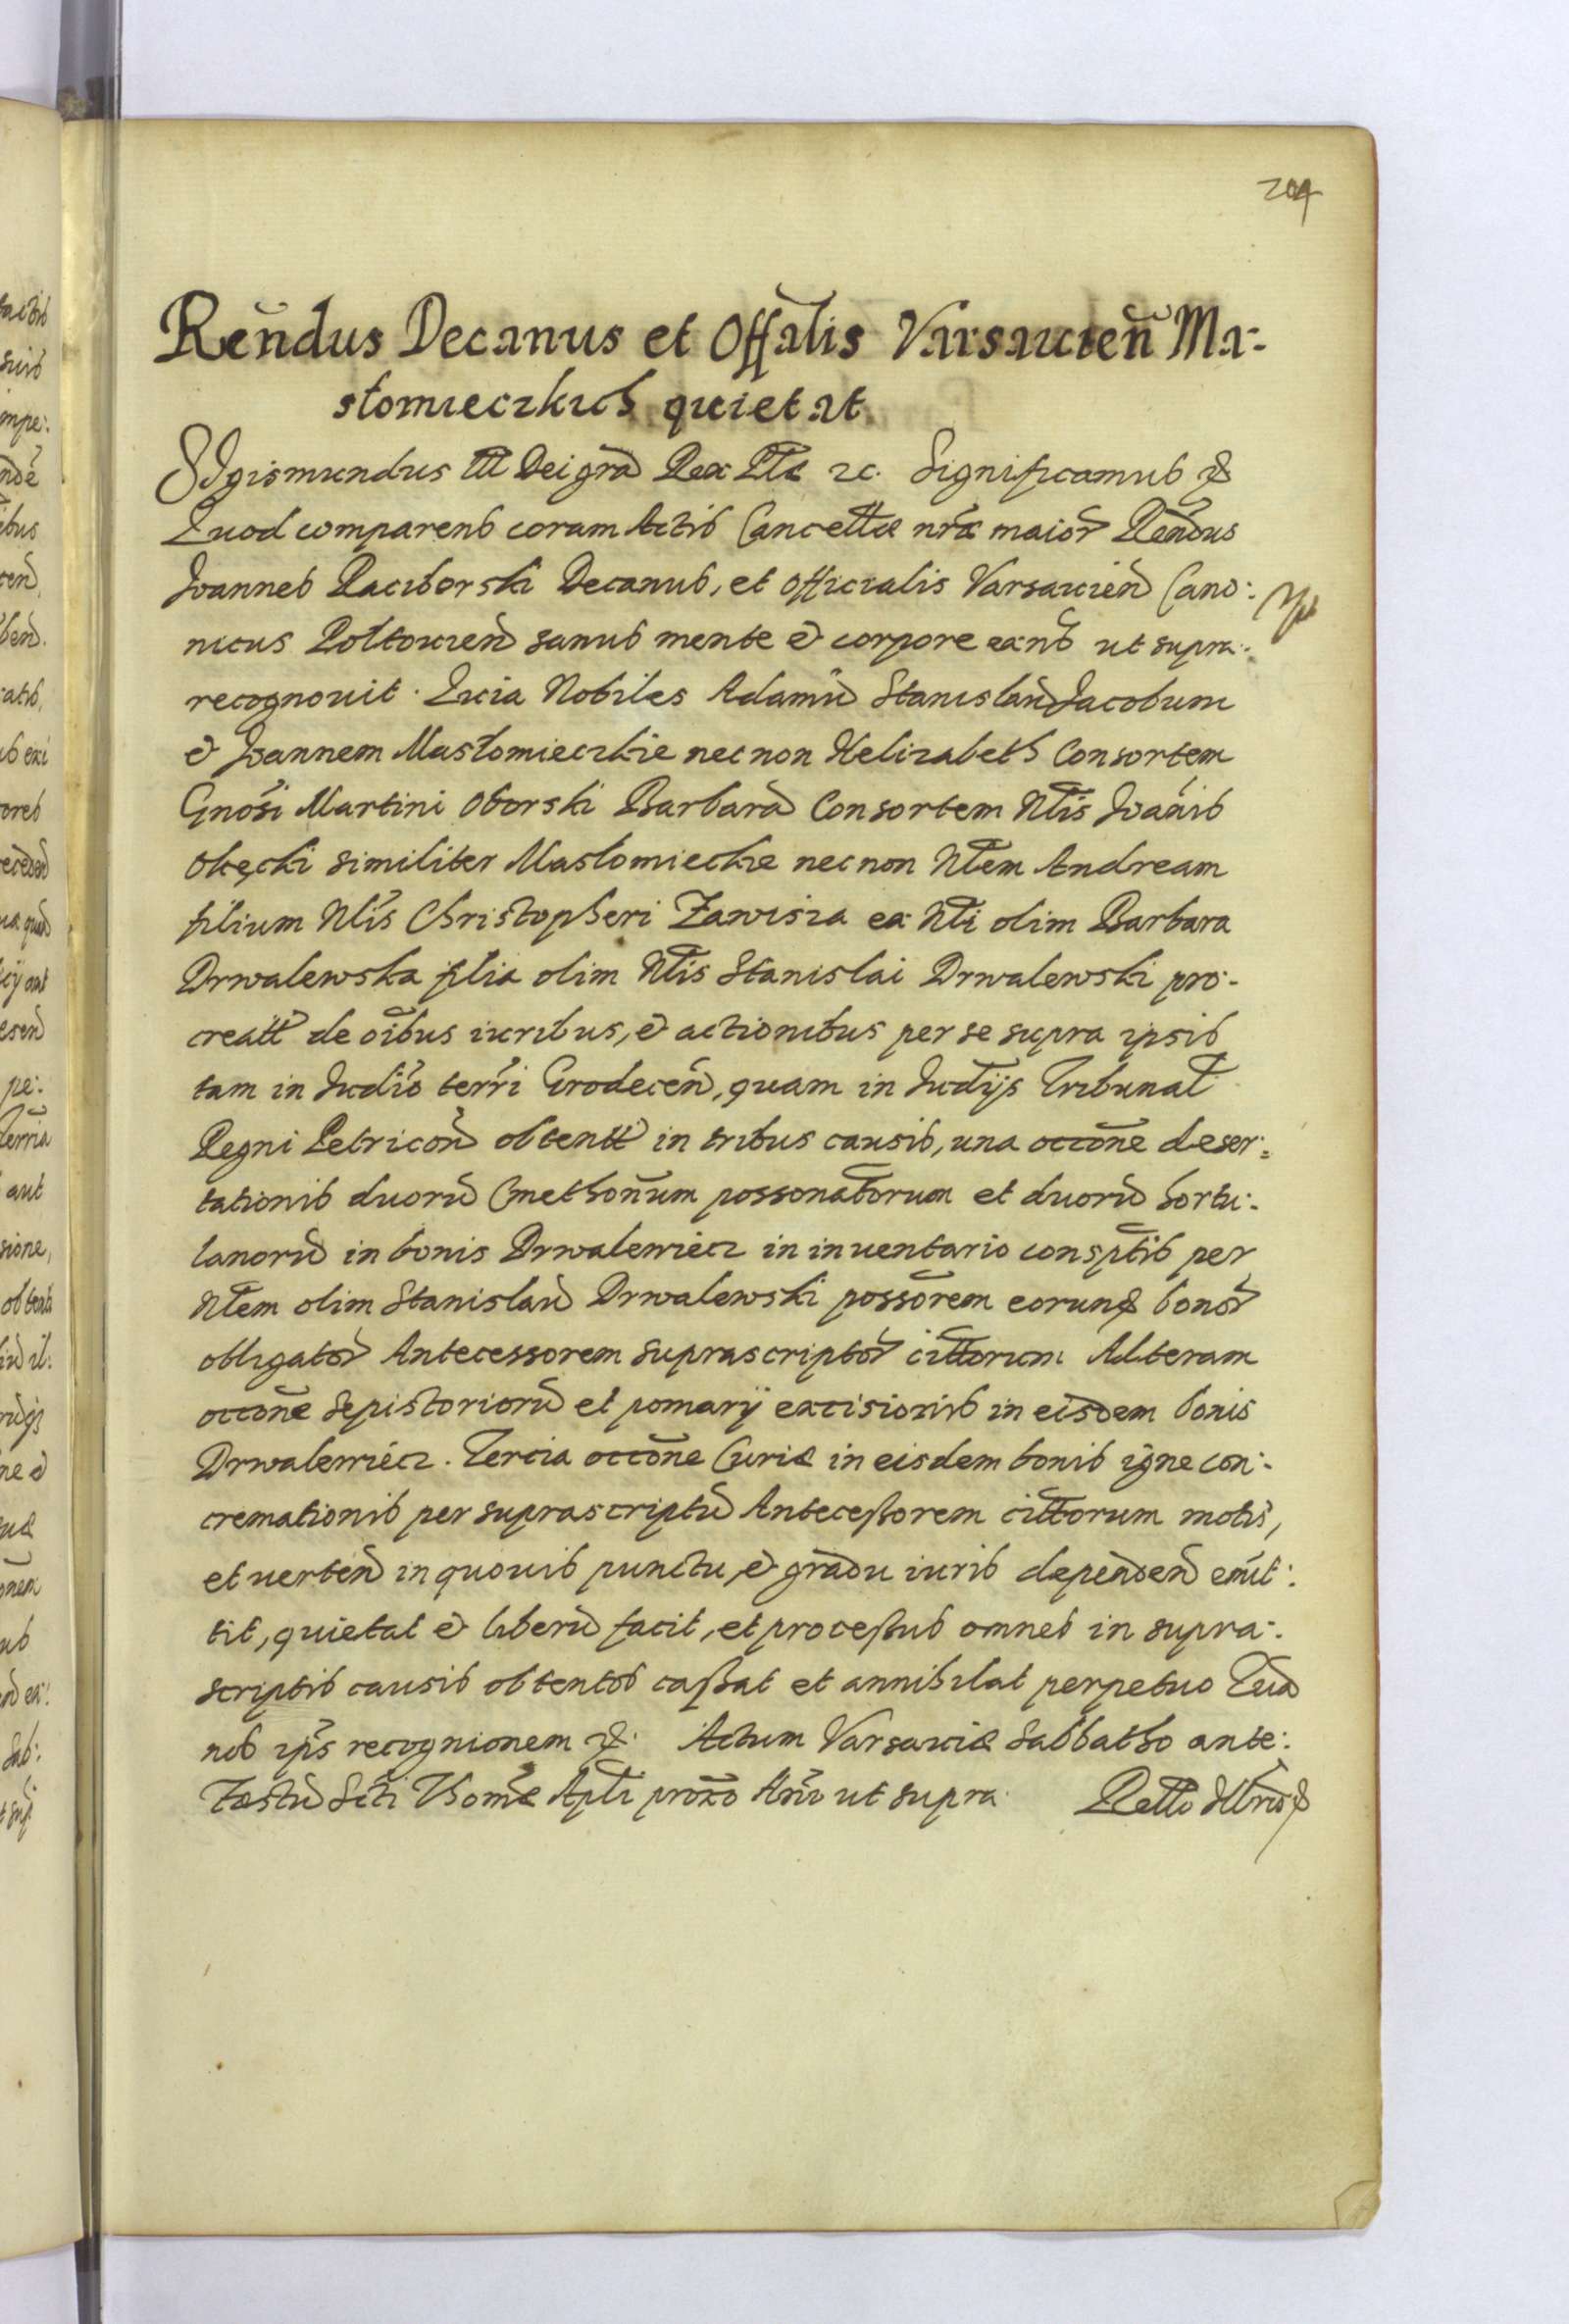 204
Rendus Decanus et Offalis Varsauien Ma-
słomieczkich quietat.
SIgismundus III Dei gra Rex Plæ zc. Significamus &
Quod comparens coram Actis Cancellæ nræ maior Rendus
Joannes Raciborski Decanus, et Officialis Varsauien Cano:
nicus Poltouien sanus mente & corpore exns ut supra.
recognouit. Quia Nobiles Adamu Stanislau Jacobum
& Joannem Masłomieczkie nec non Helizabeth Consortem
Gnosi Martini Oborski Barbara Consortem Nlis Joanis
Okęcki similiter Masłomieckie nec non Nlem Andream
filium Nlis Christopheri Zawisza ex Nli olim Barbara
Drwalewska filia olim Nlis Stanislai Drwalewski pro-
creatt de oibus iuribus, & actionibus per se supra ipsis
tam in Judio terri Grodecen, quam in Judijs Tribunal
Regni Petricon obtentt in tribus causis, una occone deser:
tationis duoru Cmethonum possonatorum et duoru hortu:
lanoru in bonis Drwalewiecz in inuentario consptis per
Nlem olim Stanislau Drwalewski possorem eorund bonor
obligator Antecessorem suprascriptor cittorum Alteram
occone sepistorioru et pomarij excisionis in eisdem bonis
Drwalewiecz. Tercia occone Curiæ in eisdem bonis igne con:
cremationis per suprascriptu Antecessorem cittorum motis,
et uerten in quouis punctu, & gradu iuris dependen emit:
tit, quietat & liberu facit, et processus omnes in supra:
scriptis causis obtentos cassat et annihilat perpetuo
nob ips recognionem &. Actum Varsauiæ Sabbatho ante:
Festu Scti Thomæ Apli proxo Ano ut supra.